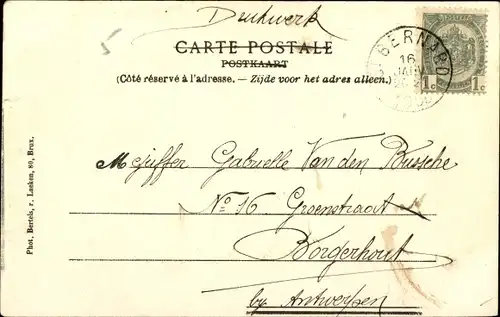 Drukwerk
CARTE POSTALE
POSTKAART
(Côté réservé à l'adresse. — Zijde voor het adres alleen.)
BERNARD
16
1c 1c
Mejuffer Gabrielle Van den Bussche
No 16 Groenstraat
Borgerhout
by Antwerpen
Phot. Bertels, r. Laeken, 89, Brux.